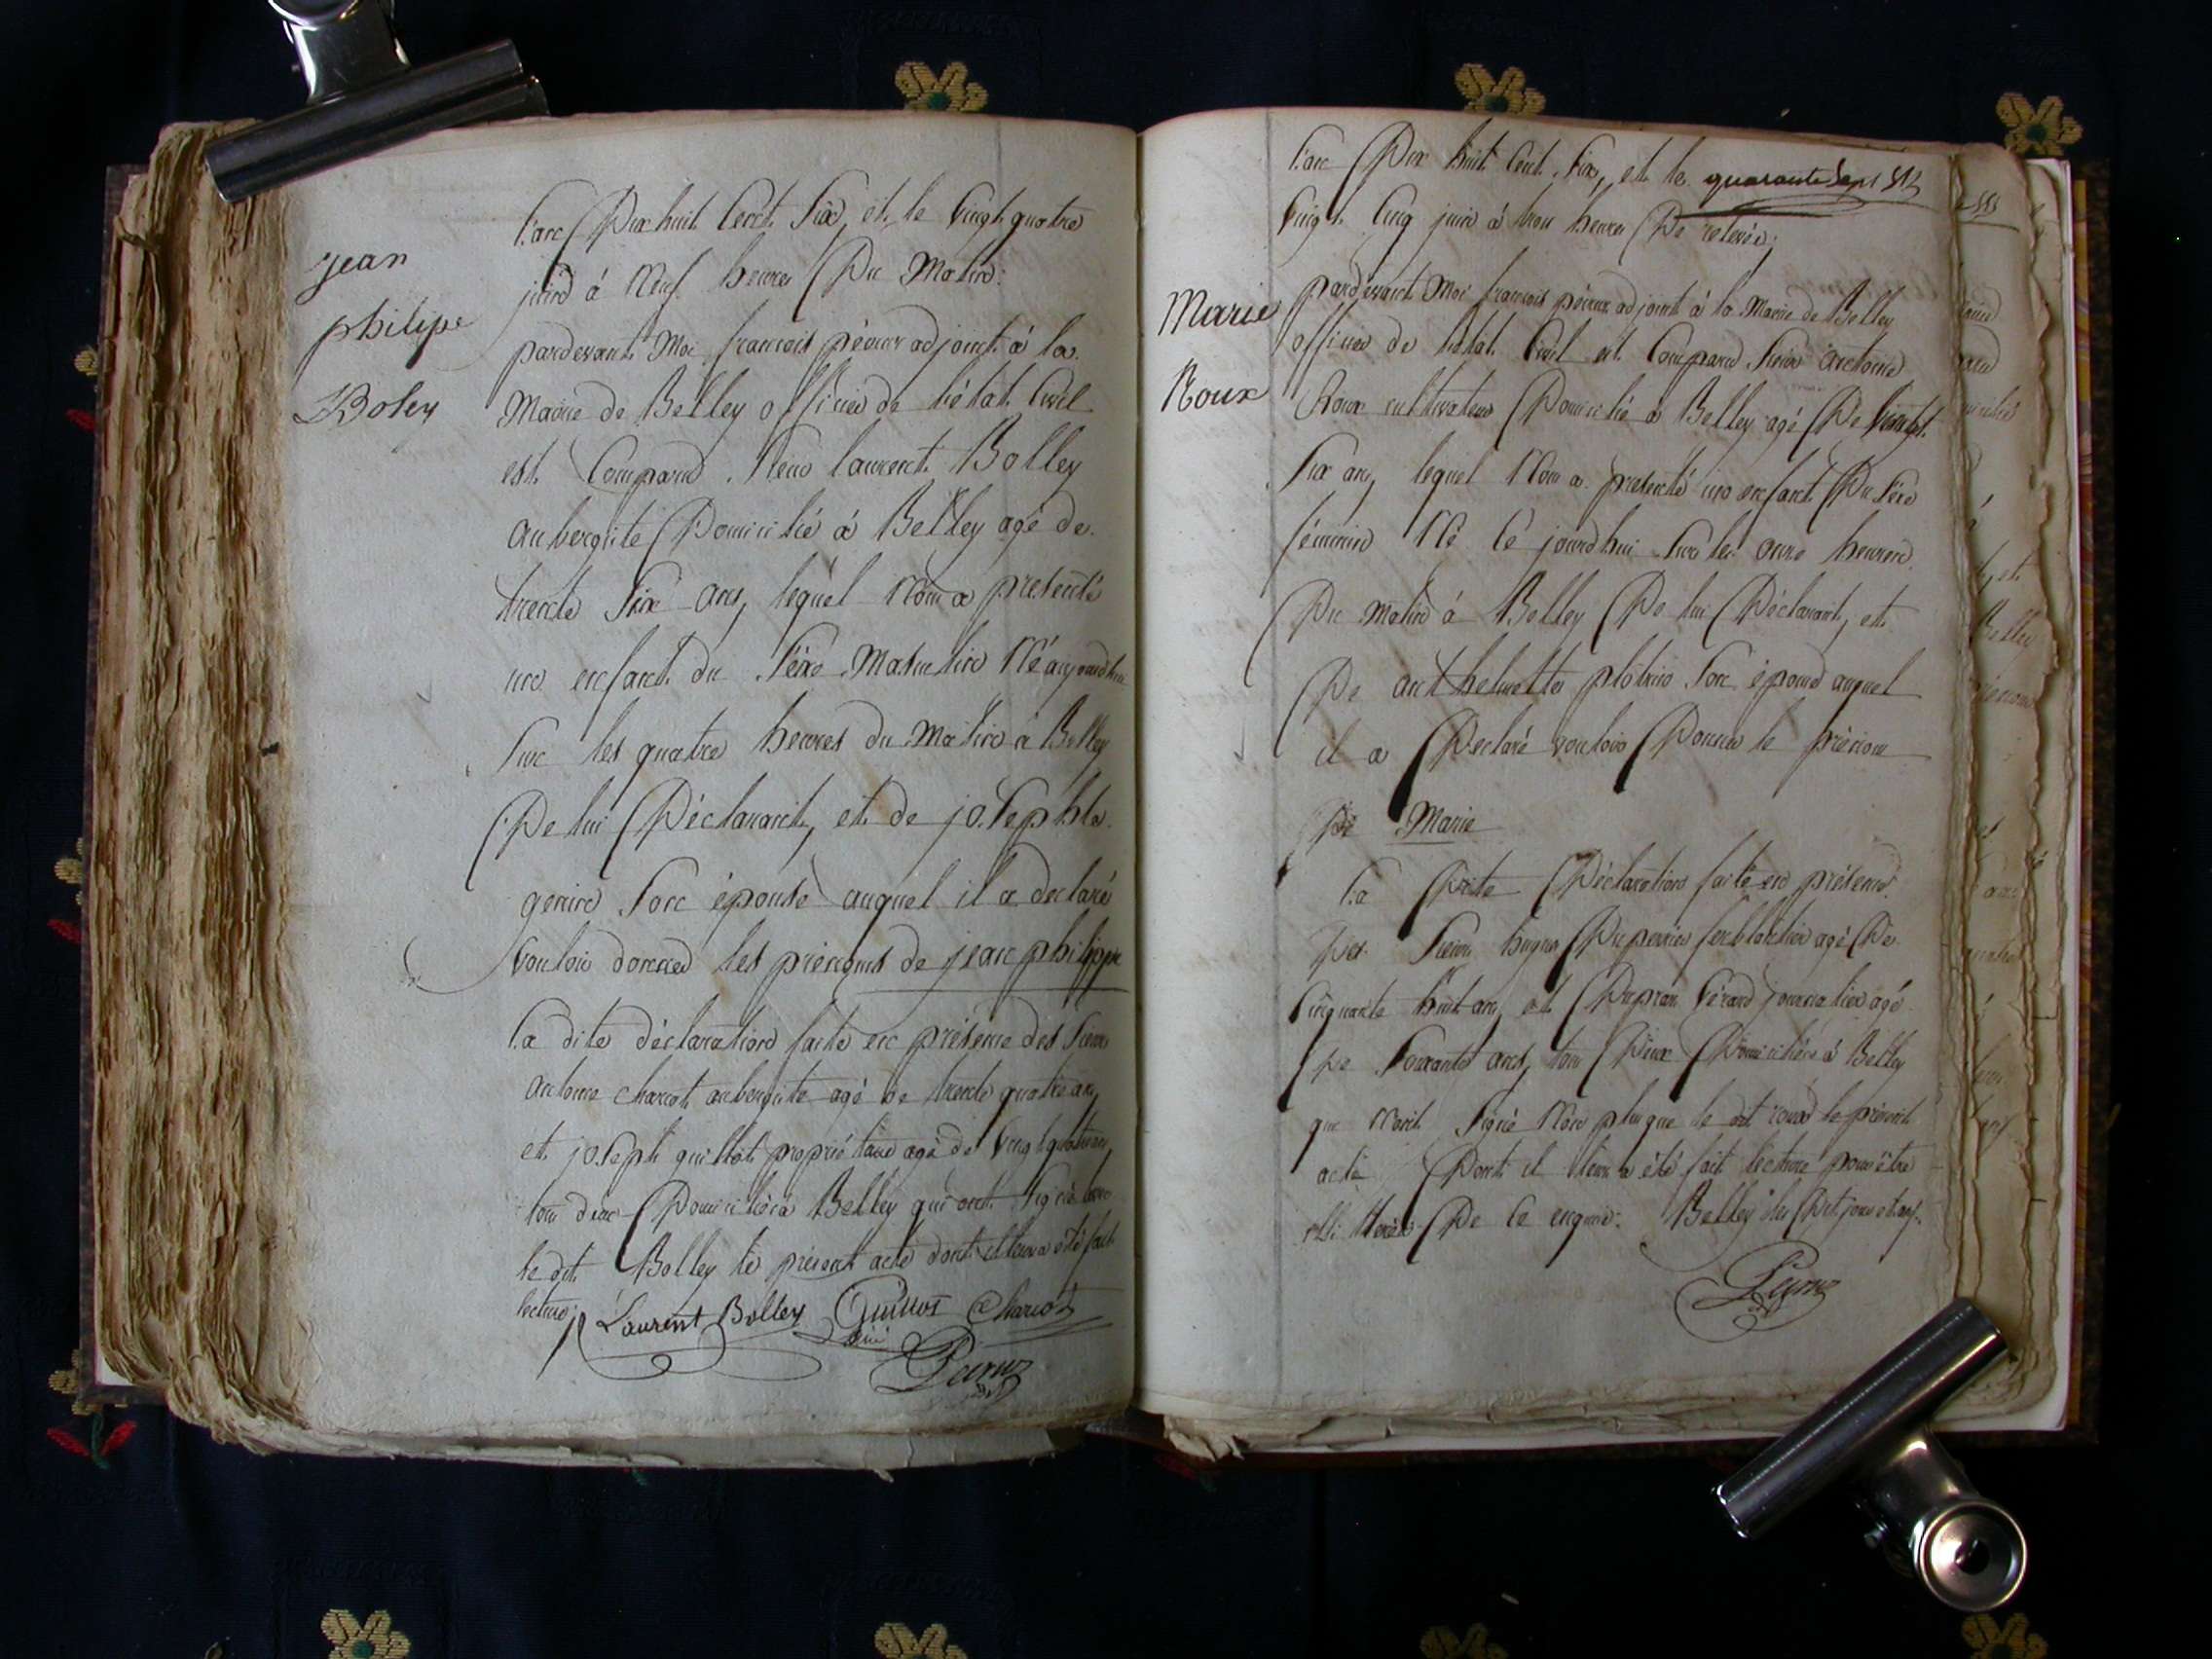 jean
philipe
Boley
L'an Dix huit Cent Six, et le vingt quatre
juin à Neuf heures Du Matin:
pardevant Moi francois péroux adjoint à la
Mairie de Belley officier de l'état Civil
est Comparu Sieur laurent Bolley
aubergiste Domicilié à Belley agé de
trente Six ans, lequel Nous a presenté
un enfant du Séxe Masculin Né aujourdhui
Sur les quatre heures du Matin à Belley
De lui Déclarant, et de josephte
genin Son épouse auquel il a declaré
vouloir donner les prénoms de jean philippe
La dite déclaration faite en présence des Sieurs
antoine charcot aubergiste agé de trente quatre ans
et joseph guillot propriétaire agé de vingt quatre ans,
tous deux Domiciliés à Belley qui ont Signé avec
le dit Bolley le présent acte dont il leur a été fait
lecture;
Laurent Bolley Guillot Charcot
quarante Sept
L'an Dix huit Cent Six, et le
vingt Cinq juin à trois heures De relevée;
Marie
Roux
pardevant Moi francois péroux adjoint à la Mairie de Belley
officier de l'état Civil est Comparu Sieur antoine
Roux cultivateur Domicilié à Belley agé De vingt
Six ans, lequel Nous a presenté un enfant Du Séxe
féminin Né Ce jourdhui Sur les onze heures
Du Matin à Belley De lui Déclarant, et
De anthelmette Son épouse auquel
il a Declaré vouloir Donner le prénom
De Marie
La Dite Déclaration faite en présence
Des Sieurs hugues Duperrier ferblantier agé De
Cinquante huit ans et journalier agé
De Soixante ans, tous Deux Domiciliés à Belley
qui N'ont Signé Non plus que le dit roux le présent
acte Dont il leur a été fait lecture pour être
De Ce enquis: Belley les Dit jour et an